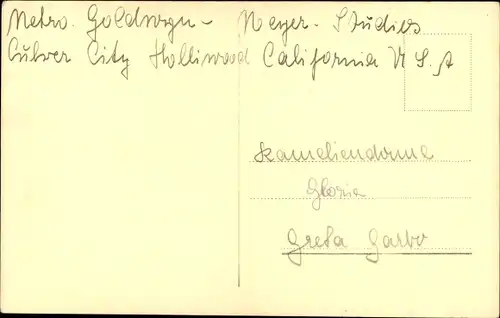 Metro. Goldwyn - Meyer. Studios
Culver City Holliwood California U S. A
Kameliendame
Gloria
Greta Garbo